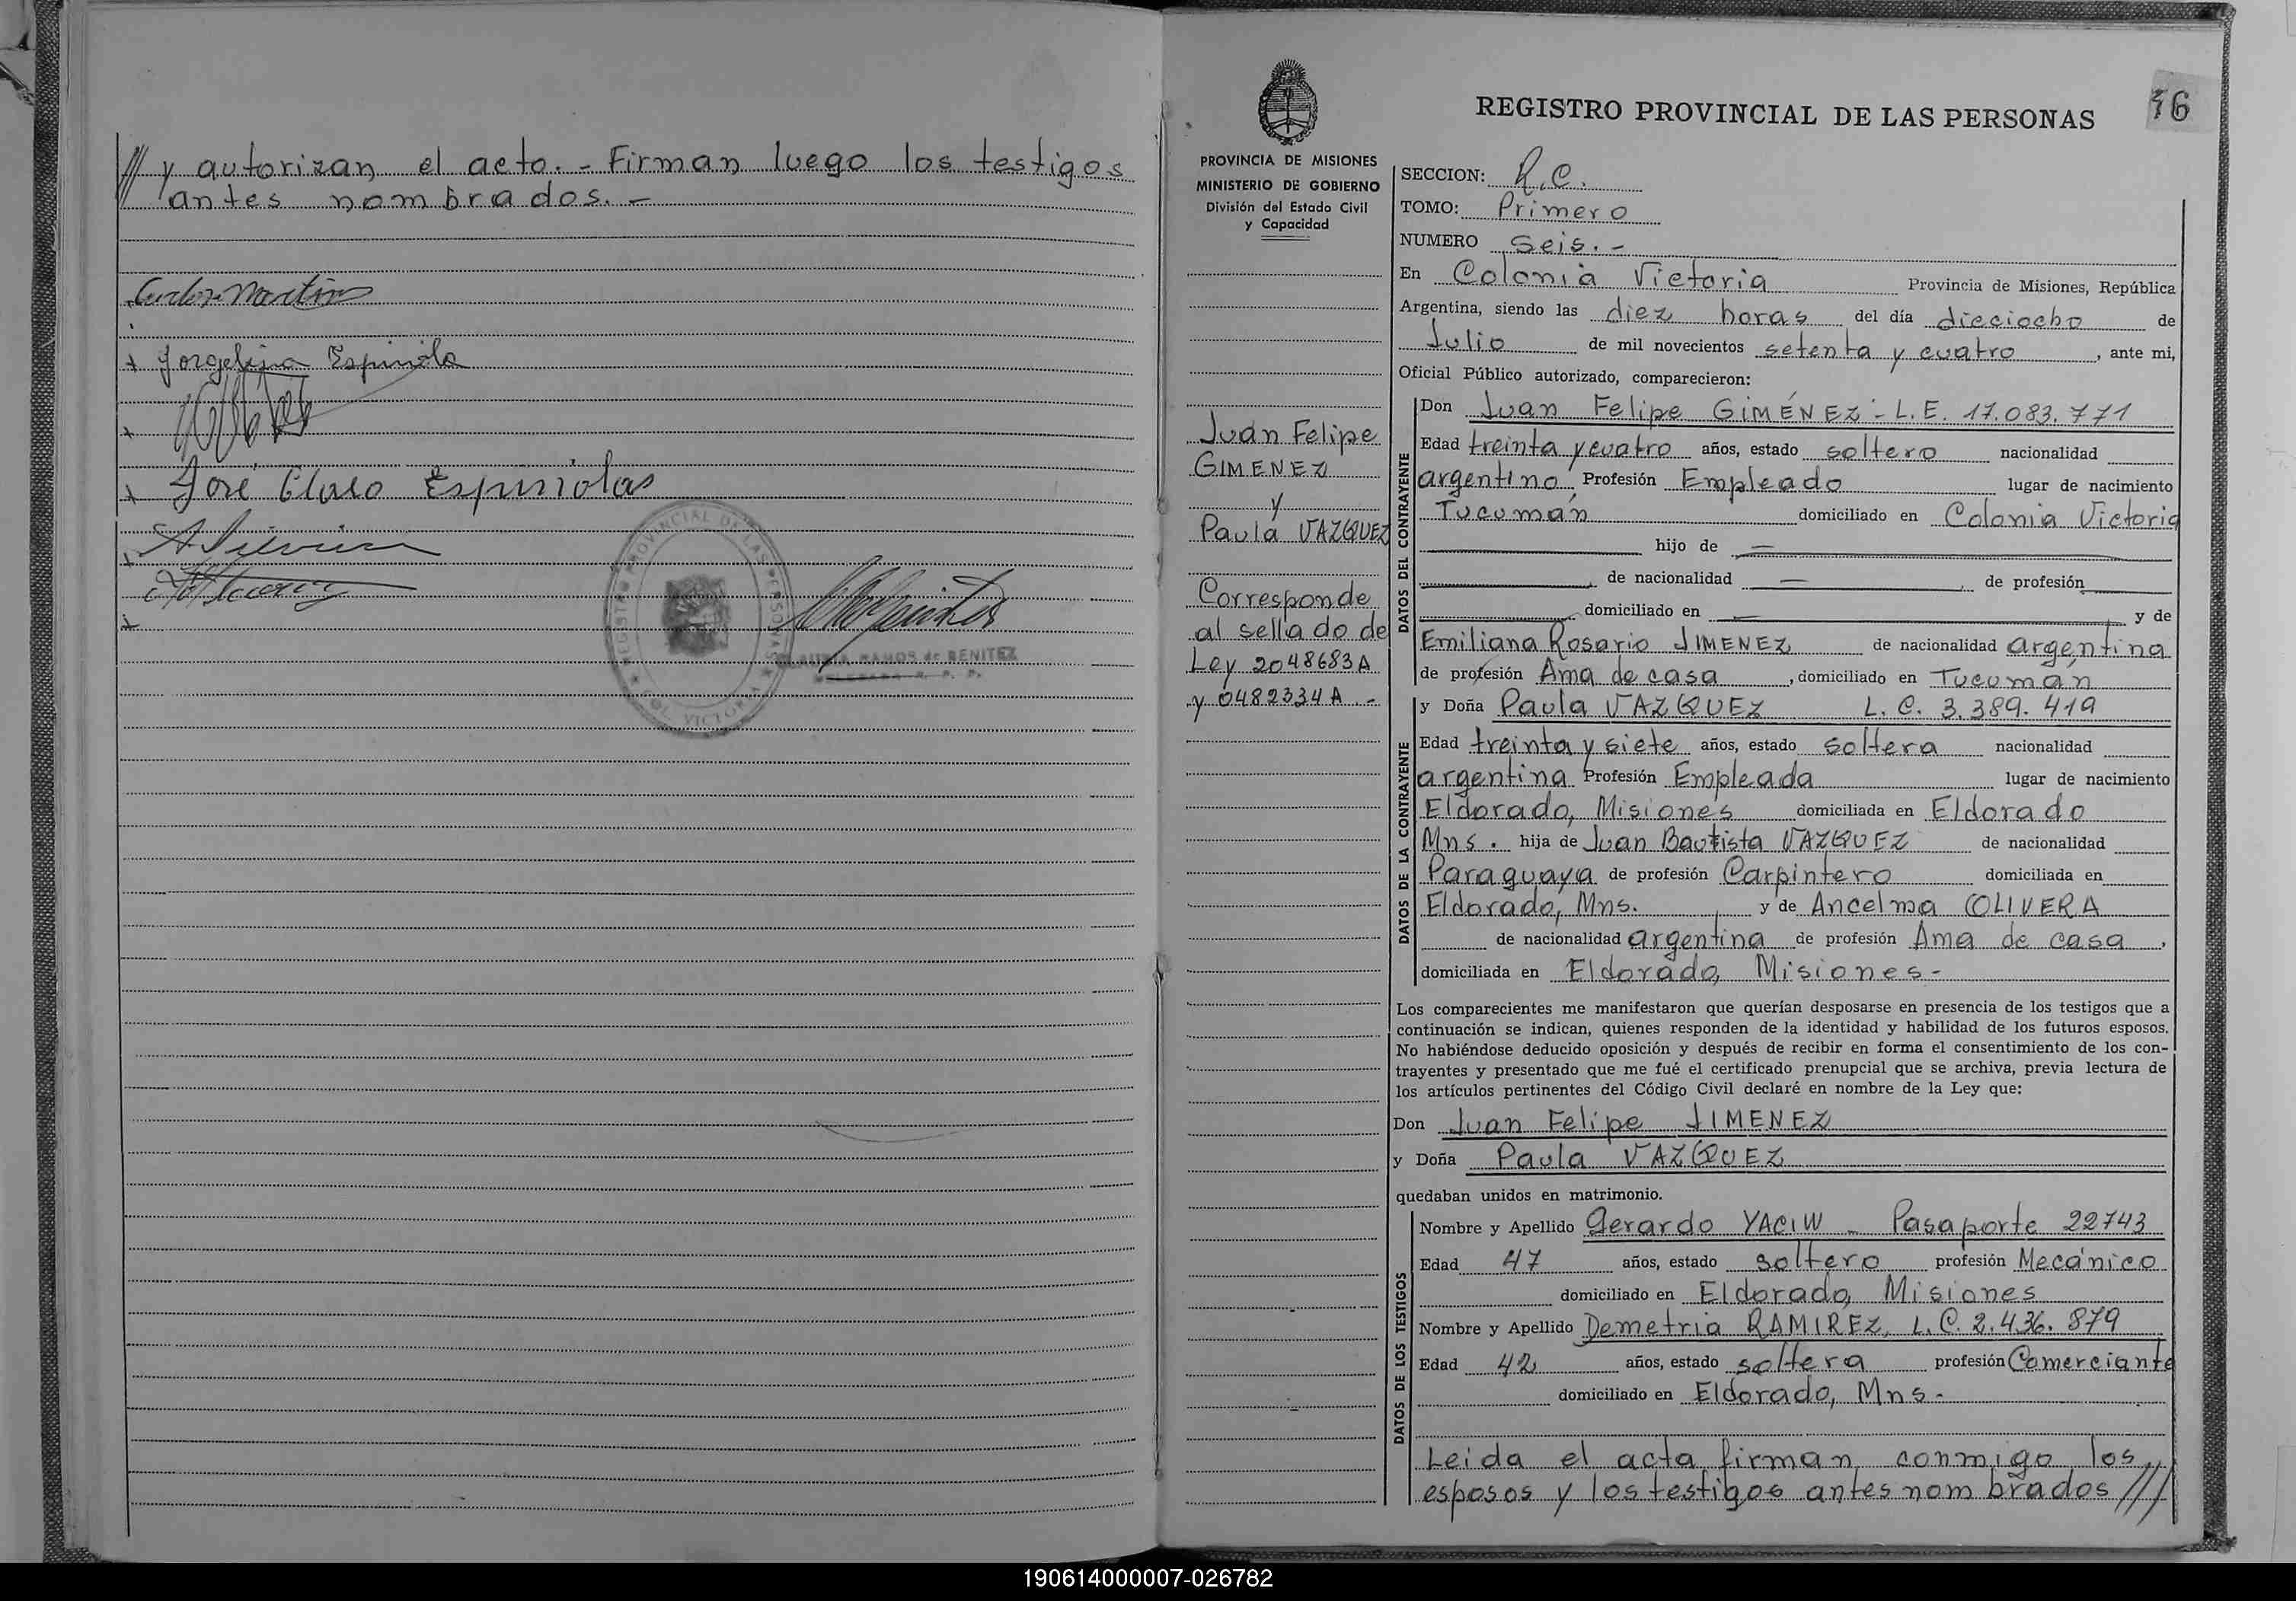 /// y autorizan el acto. - Firman luego los testigos
antes nombrados. -
Carlos Martins
Jorgelina Espinola
José Claro Espiniolas
REGISTRO PROVINCIAL DE LAS PERSONAS
COL. VICTORIA
RAMOS de BENITEZ
16
REGISTRO PROVINCIAL DE LAS PERSONAS
PROVINCIA DE MISIONES
MINISTERIO DE GOBIERNO
División del Estado Civil
y Capacidad
Juan Felipe
GIMENEZ
y
Paula VAZQUEZ
Corresponde
al sellado de
Ley 2048683A
y 0482334A. -
SECCION: R.C.
TOMO: Primero
NUMERO Seis. -
En Colonia Victoria Provincia de Misiones, República
Argentina, siendo las diez horas del día dieciocho de
Julio de mil novecientos setenta y cuatro, ante mi,
Oficial Público autorizado, comparecieron:
DATOS DEL CONTRAYENTE
Don Juan Felipe GIMÉNEZ - L.E. 17.083.771
Edad treinta y cuatro años, estado soltero nacionalidad
argentino Profesión Empleado lugar de nacimiento
Tucumán domiciliado en Colonia Victoria
hijo de —
de nacionalidad — de profesión
domiciliado en — y de
Emiliana Rosario JIMENEZ de nacionalidad argentina
de profesión Ama de casa, domiciliado en Tucumán
DATOS DE LA CONTRAYENTE
y Doña Paula VAZQUEZ L.C. 3.389.419
Edad treinta y siete años, estado soltera nacionalidad
argentina Profesión Empleada lugar de nacimiento
Eldorado, Misiones domiciliada en Eldorado
Mns. hija de Juan Bautista VAZQUEZ de nacionalidad
Paraguaya de profesión Carpintero domiciliada en
Eldorado, Mns. y de Ancelma OLIVERA
de nacionalidad argentina de profesión Ama de casa,
domiciliada en Eldorado, Misiones-
Los comparecientes me manifestaron que querían desposarse en presencia de los testigos que a
continuación se indican, quienes responden de la identidad y habilidad de los futuros esposos.
No habiéndose deducido oposición y después de recibir en forma el consentimiento de los con-
trayentes y presentado que me fué el certificado prenupcial que se archiva, previa lectura de
los artículos pertinentes del Código Civil declaré en nombre de la Ley que:
Don Juan Felipe JIMENEZ
y Doña Paula VAZQUEZ
quedaban unidos en matrimonio.
DATOS DE LOS TESTIGOS
Nombre y Apellido Gerardo YACIW - Pasaporte 22743
Edad 47 años, estado soltero profesión Mecánico
domiciliado en Eldorado, Misiones
Nombre y Apellido Demetria RAMIREZ, L.C. 2.436.879
Edad 42 años, estado soltera profesión Comerciante
domiciliado en Eldorado, Mns-
Leida el acta firman conmigo los
esposos y los testigos antes nombrados ///
190614000007-026782